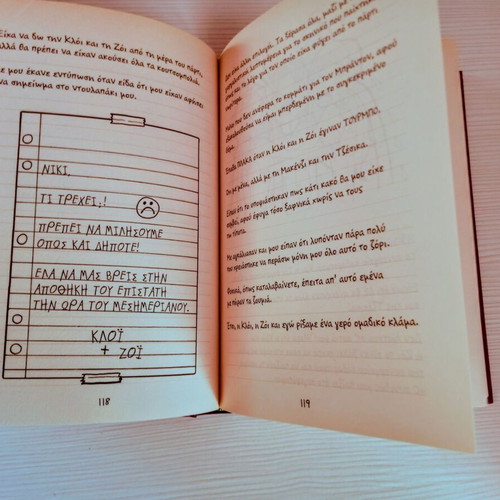 Είχα να δω την Κλόι και τη Ζόι από τη μέρα του πάρτι,
αλλά θα πρέπει να είχαν ακούσει όλα τα κουτσομπολιά.
μου έκανε εντύπωση όταν είδα ότι μου είχαν αφήσει
να σημείωμα στο ντουλαπάκι μου.
ΝΙΚΙ,
ΤΙ ΤΡΕΧΕΙ;!
ΠΡΕΠΕΙ ΝΑ ΜΙΛΗΣΟΥΜΕ
ΟΠΩΣ ΚΑΙ ΔΗΠΟΤΕ!
ΕΛΑ ΝΑ ΜΑΣ ΒΡΕΙΣ ΣΤΗΝ
ΑΠΟΘΗΚΗ ΤΟΥ ΕΠΙΣΤΑΤΗ
ΤΗΝ ΩΡΑ ΤΟΥ ΜΕΣΗΜΕΡΙΑΝΟΥ.
ΚΛΟΪ
+ ΖΟΪ
118
Δεν είχα άλλη επιλογή. Τα ξέρασα όλα, μαζί με
λεπτομέρεια για το κοινωνικό που παίχτηκε
και το λόγο για τον οποίο είχα φύγει από το πάρτι
νωρίτερα.
που δεν ανέφερα το κομμάτι για τον Μπράντον, αφού
να είμαι μπερδεμένη με το συγκεκριμένο
θέμα.
ΠΛΑΚΑ όταν η Κλόι και η Ζόι έγιναν ΤΟΥΡΜΠΟ.
με μένα, αλλά με τη Μακένζι και την Τζέσικα.
ότι το υποψιάστηκαν πως κάτι κακό θα μου είχε
συμβεί, αφού έφυγα τόσο ξαφνικά χωρίς να τους
πω τίποτα.
Με αγκάλιασαν και μου είπαν ότι λυπόνταν πάρα πολύ
που χρειάστηκε να περάσω μόνη μου όλο αυτό το ζόρι.
Φυσικά, όπως καταλαβαίνετε, έπειτα απ' αυτό εμένα
με πήραν τα ζουμιά.
Έτσι, η Κλόι, η Ζόι και εγώ ρίξαμε ένα γερό ομαδικό κλάμα.
119